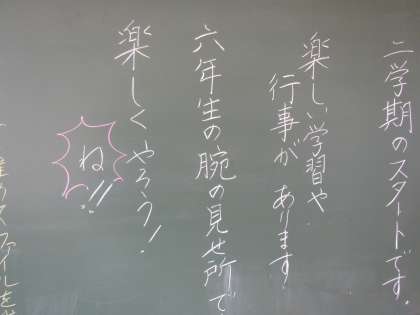 二学期のスタートです。
楽しい学習や
行事があります！
六年生の腕の見せ所で
楽しくやろう！
ね!!